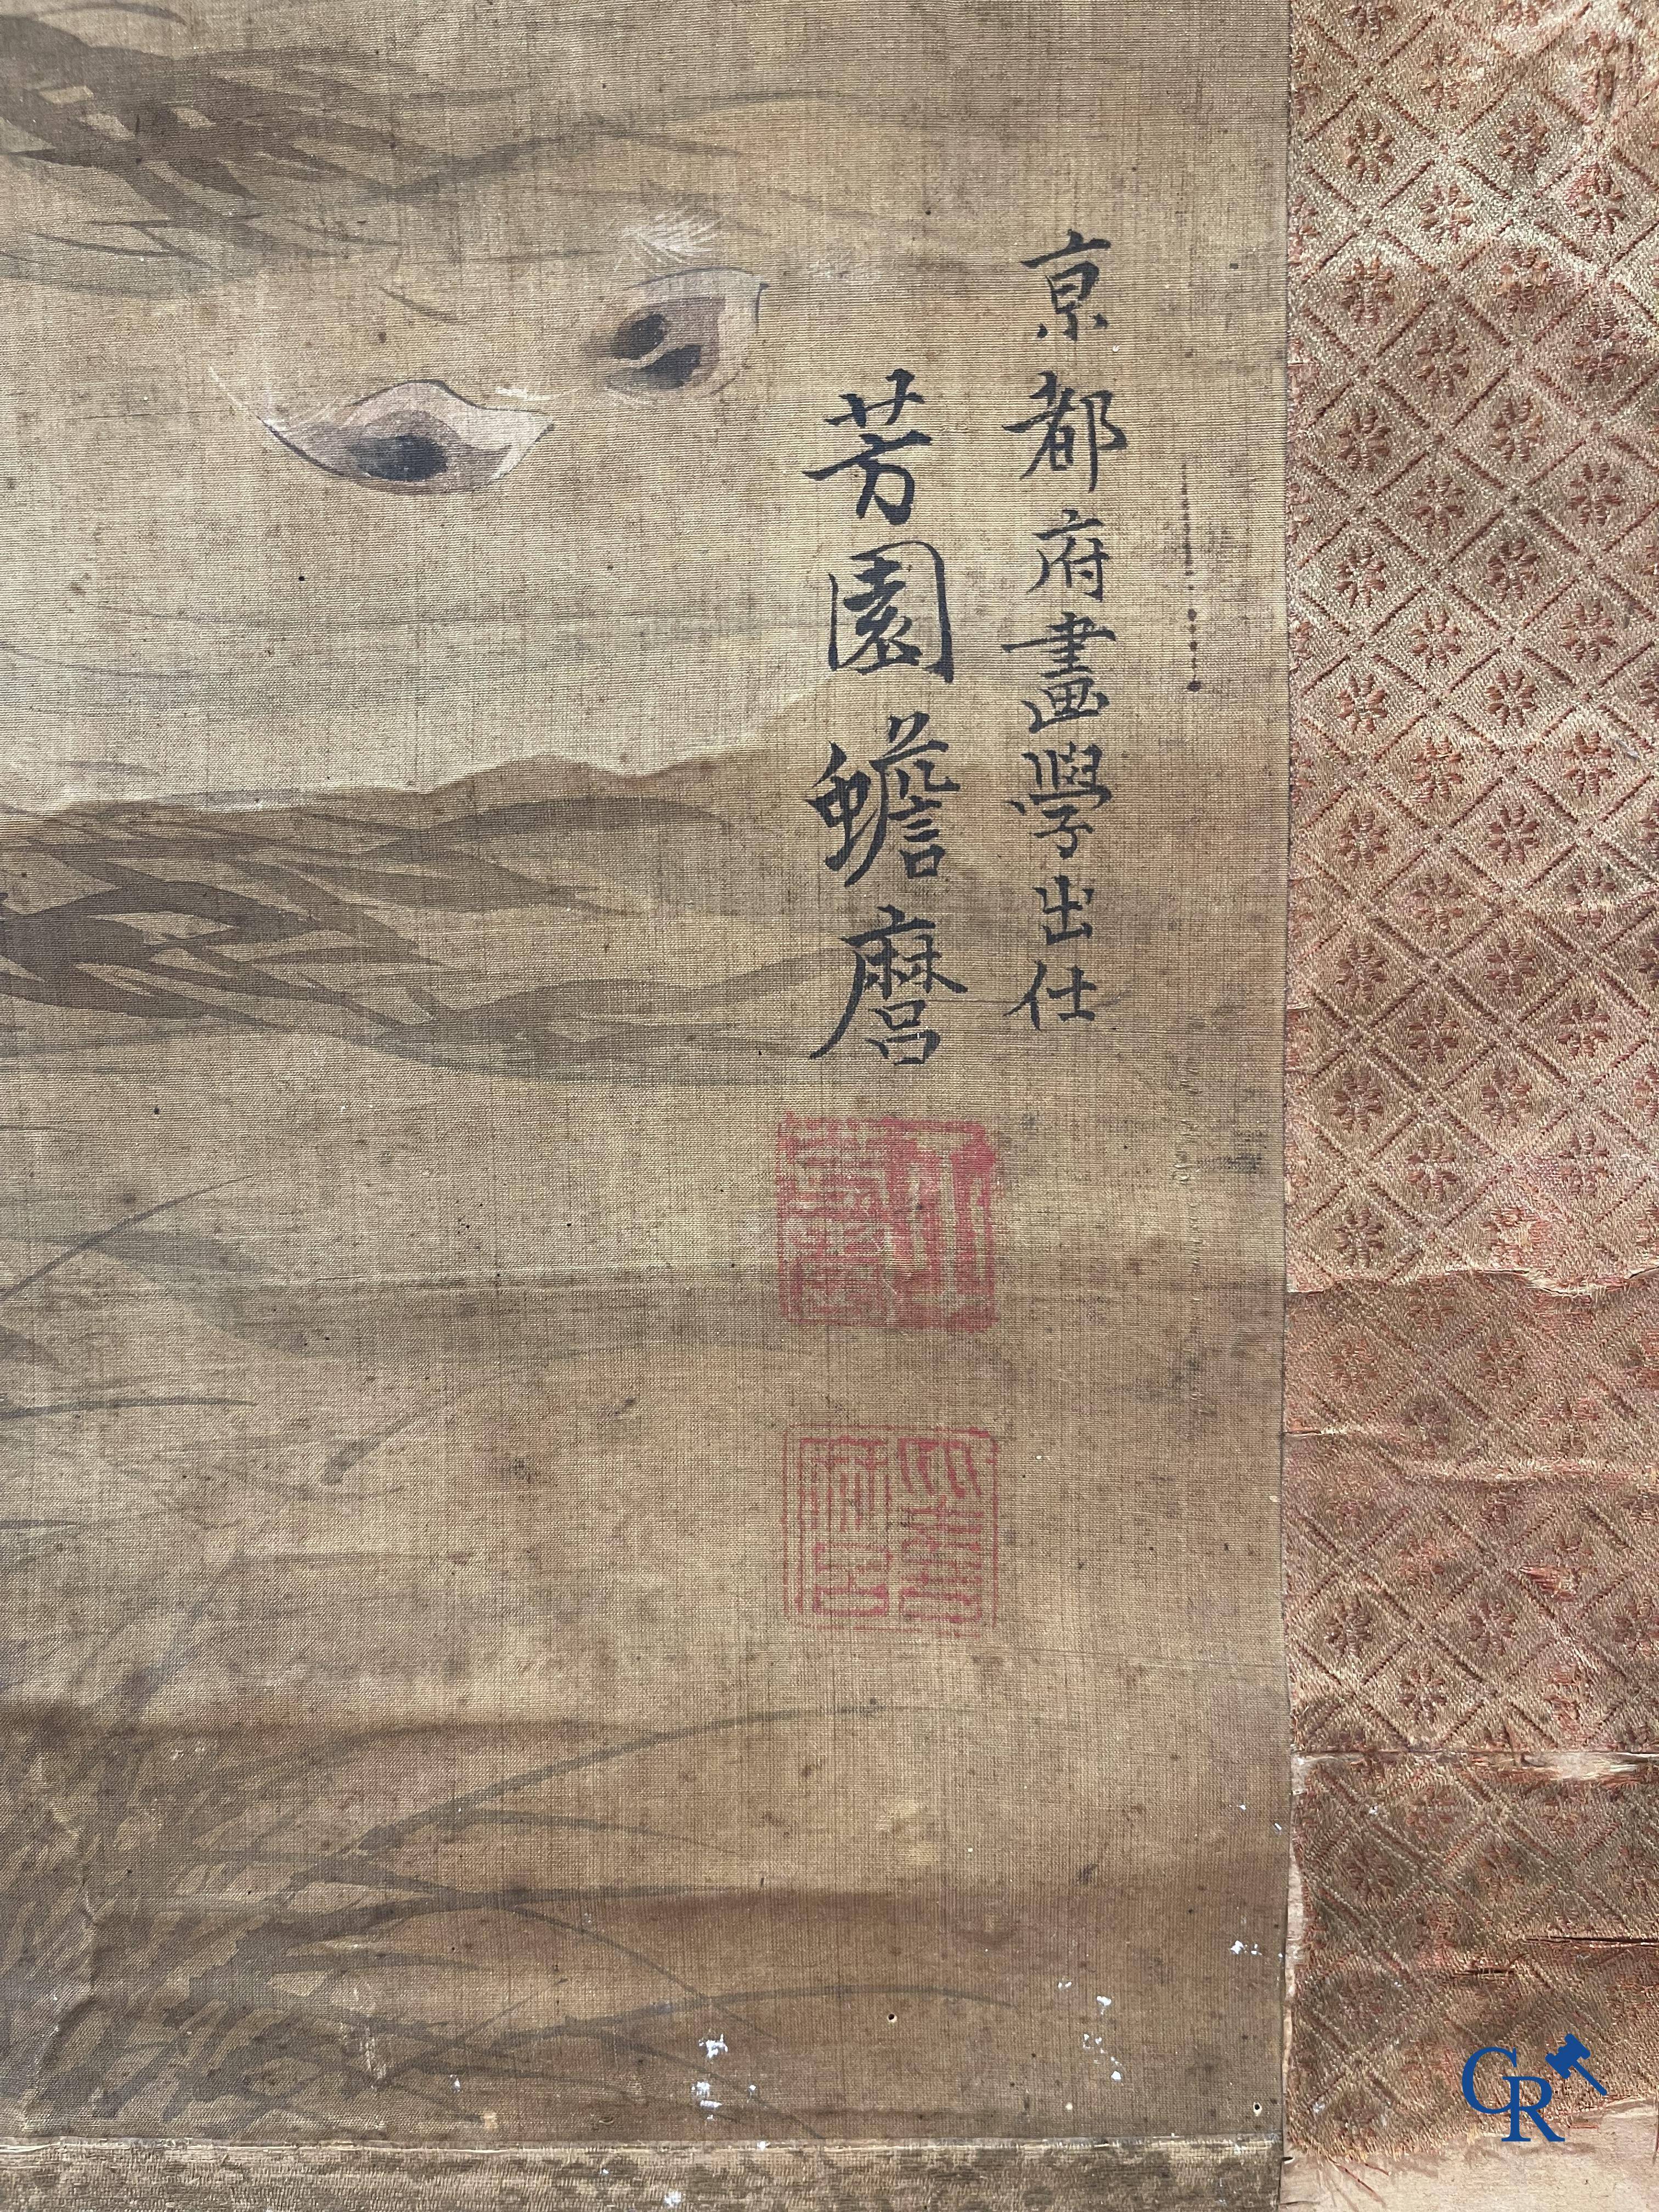 京都府畫學出仕
芳園蟾麿
CR